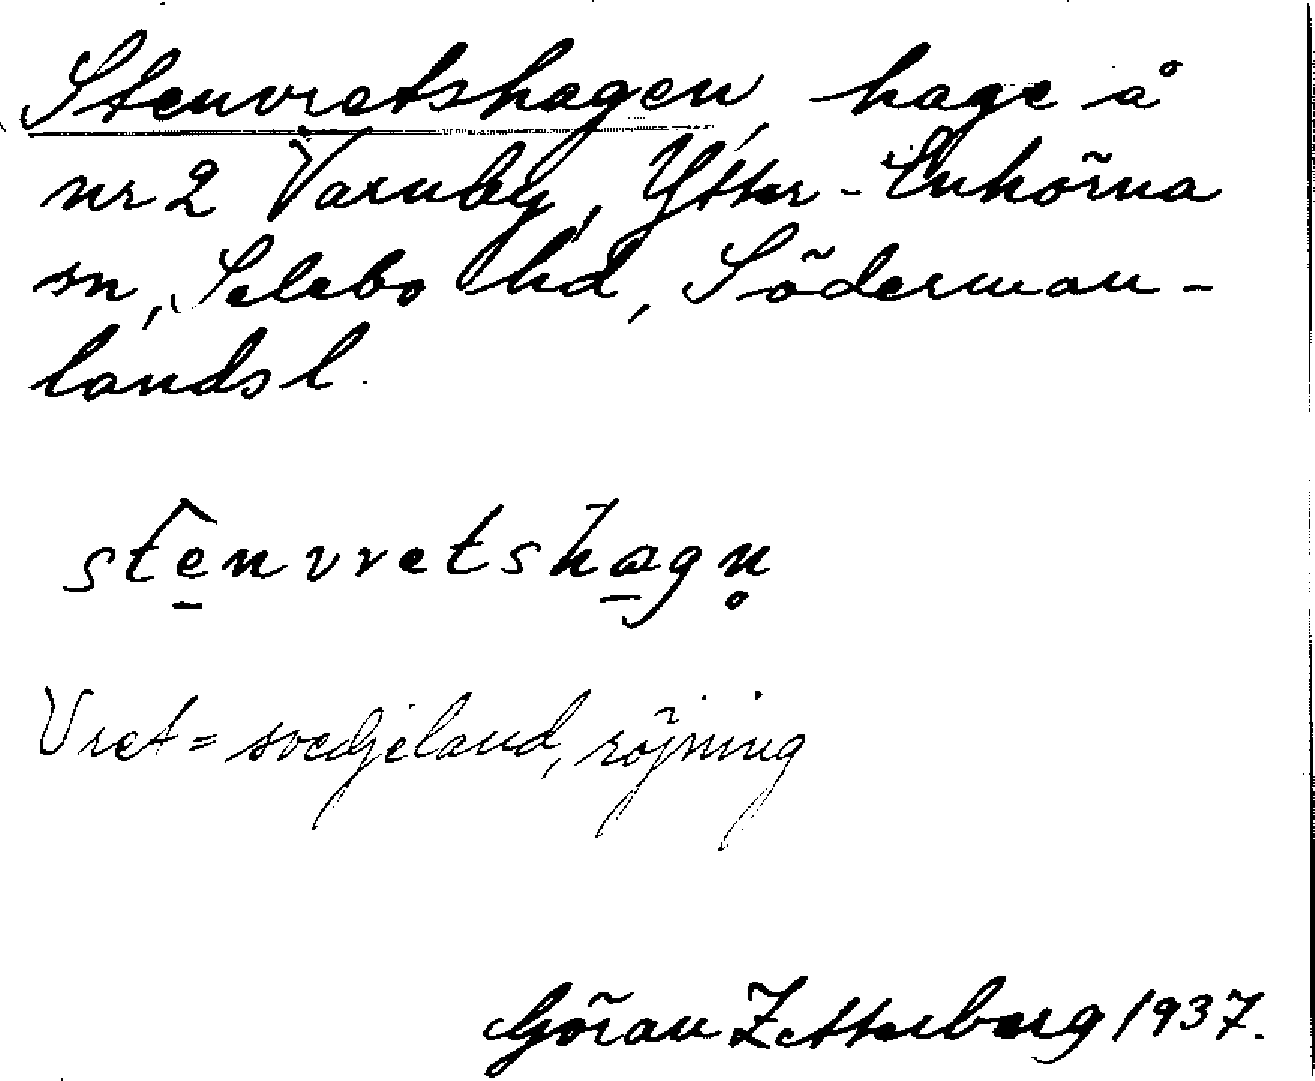 Stenvretshagen, hage å
nr 2 Varnby, Ytter-Enhörna
sn, Selebo hd, Söderman-
lands l.
stēnvretshāgn̥
Vret = svedjeland, röjning
Göran Zetterberg 1937.